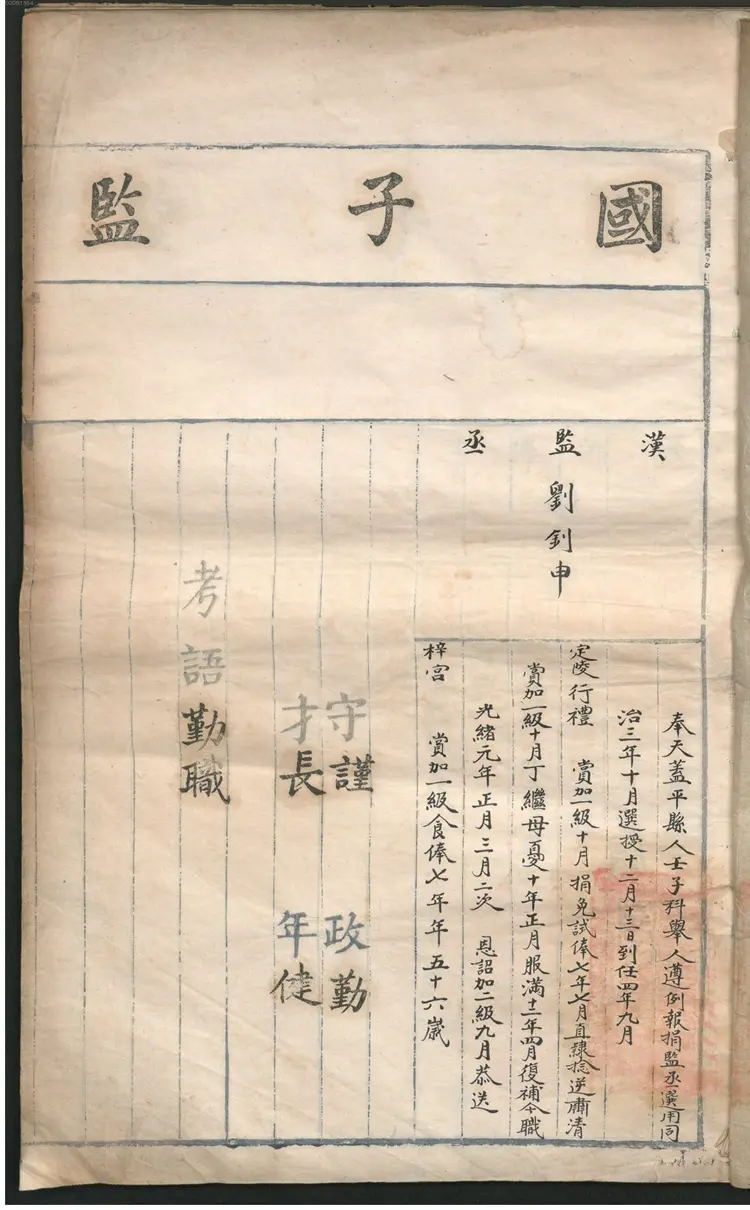 國子監
漢監丞
劉釗申
奉天蓋平縣人壬子科舉人遵例報捐監丞選用同
治三年十月選授十二月十三日到任四年九月
定陵行禮 賞加一級十月捐免試俸七年七月直隸捻逆肅清
賞加一級十月丁繼母憂十年正月服滿十一年四月復補今職
光緒元年正月三月二次 恩詔加二級九月恭送
梓宮 賞加一級食俸七年年五十六歲
守謹 政勤
才長 年健
考語勤職